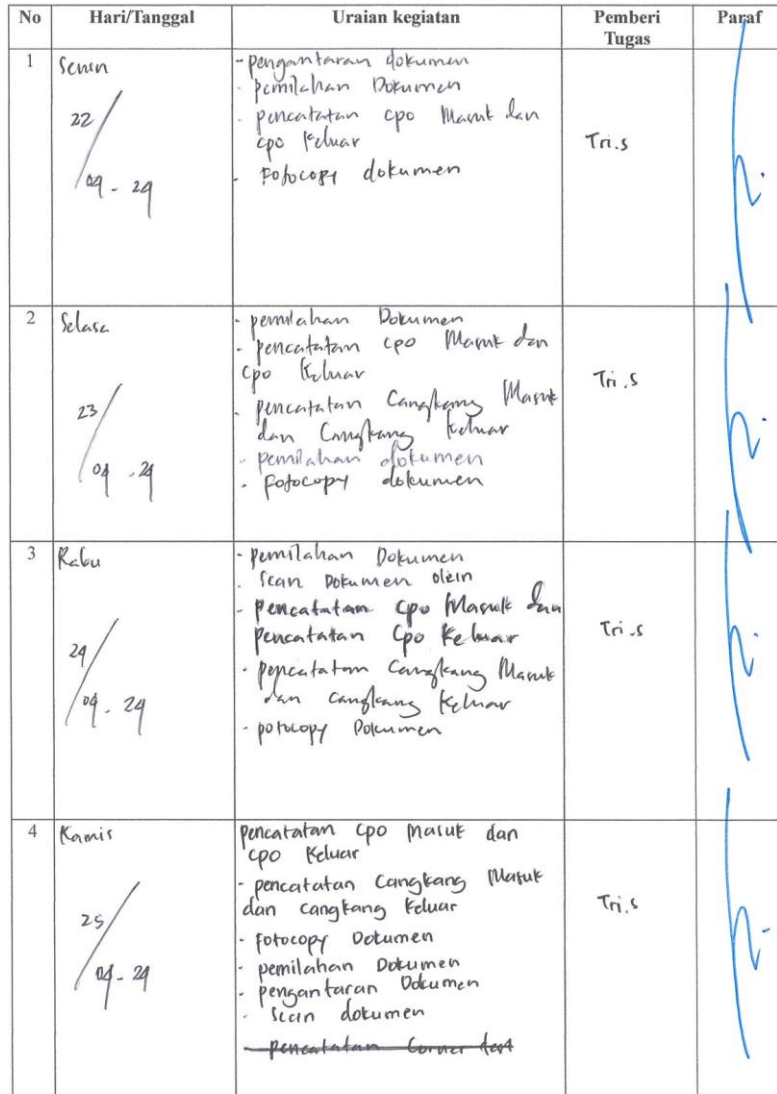 No Hari/Tanggal Uraian kegiatan Pemberi Tugas Paraf
1 Senin
22/04-24
- pengantaran dokumen
- pemilahan Dokumen
- pencatatan cpo Masuk dan
cpo Keluar
- Fotocopy dokumen
Tri.s
2 Selasa
23/04-24
- pemilahan Dokumen
- pencatatan cpo Masuk dan
cpo Keluar
- pencatatan Cangkang Masuk
dan Cangkang Keluar
- pemilahan dokumen
- Fotocopy dokumen
Tri.s
3 Rabu
24/04-24
- pemilahan Dokumen
- Scan Dokumen olein
- pencatatan cpo Masuk dan
pencatatan Cpo Keluar
- pencatatan Cangkang Masuk
dan cangkang Keluar
- potocopy Dokumen
Tri.s
4 Kamis
25/04-24
pencatatan cpo masuk dan
cpo Keluar
- pencatatan Cangkang Masuk
dan cangkang Keluar
- Fotocopy Dokumen
- pemilahan Dokumen
- pengantaran Dokumen
- Scan dokumen
- pencatatan
Tri.s